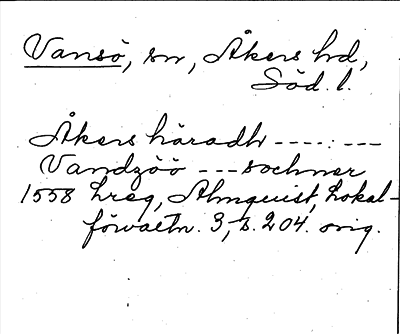 Vansö, sn, Åkers hd,
Söd. l.
Åkers häradh ---.: ---
Vandzöö --- sochner
1558 Lreg, Almquist, Lokal-
förvaltn. 3, s. 204. orig.